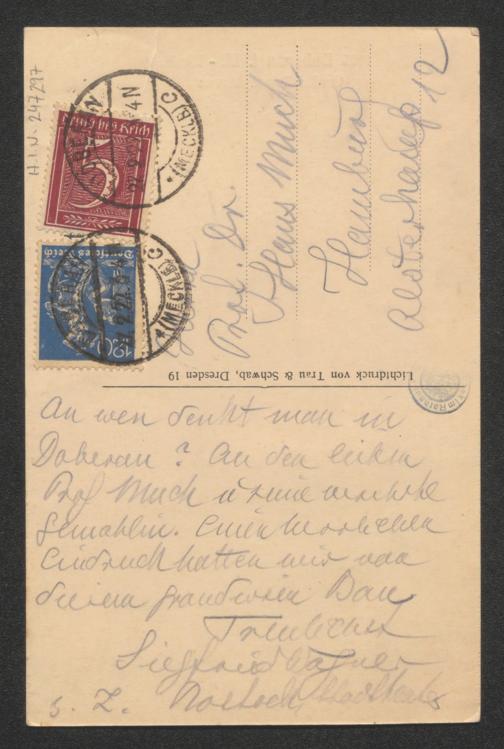 Prof. Dr.
Hans Much
Hamburg
Alsterkamp 12
Lichtdruck von Trau & Schwab, Dresden 19
An wen denkt man in
Doberan? An den lieben
Prof Much u seine verehrte
Gemahlin. Einen herrlichen
Eindruck hatten wir von
diesem grandiosen Bau
Treulichst
Siegfried Wagner
z. Z. Rostock, Stadttheater
H.I.N. 247297
Deutsches Reich
120
5
DOBERAN
(MECKLB) C
DOBERAN
(MECKLB) C